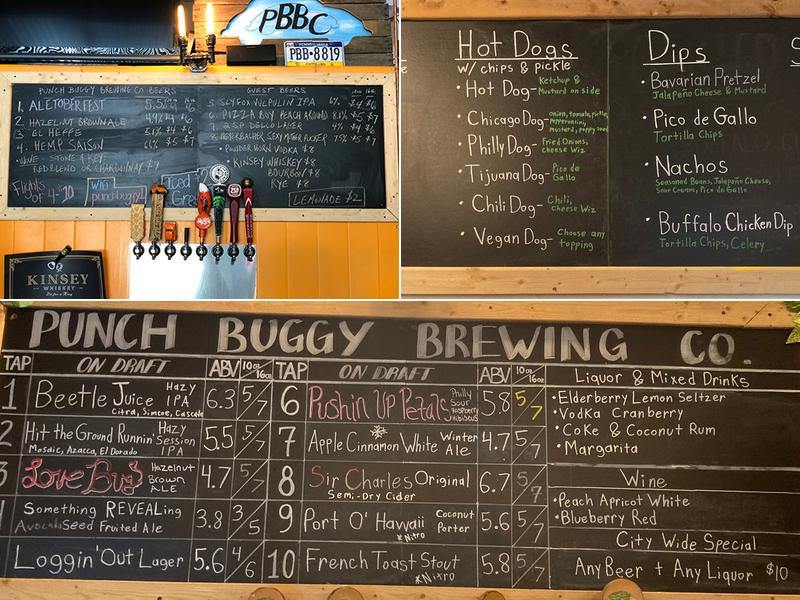 PBBC
PENNSYLVANIA
PBB•8819
PUNCH BUGGY BREWING CO BEERS
1. ALETOBERFEST 5.5%
2. HAZELNUT BROWN ALE
3 EL HEFFE
4. HEMP SAISON
RED BLEND OR CHARDONNAY $7
Flights
of 4-$10
Win
punchbuggy
Iced
GUEST BEERS
5. SLYFOX VULPULIN IPA 6% $4 $6
6. PIZZA BOY PEACH AROUND 8.1% $5 $7
7. 2SP DELLO LAGER
POWDER HORN VODKA $8
• KINSEY WHISKEY $8
BOURBON $8
RYE $8
LEMONADE $2
KINSEY
WHISKEY
Hot Dogs
w/ chips & pickle
• Hot Dog- Ketchup &
Mustard on side
• Chicago Dog- onion, tomato, pickle,
pepperoncini,
mustard, poppy seed
• Philly Dog- Fried Onions,
cheese Wiz
• Tijuana Dog- Pico de
Gallo
• Chili Dog- Chili,
cheese Wiz
• Vegan Dog- Choose any
topping
Dips
• Bavarian Pretzel
Jalapeño Cheese & Mustard
• Pico de Gallo
Tortilla Chips
• Nachos
Seasoned Beans, Jalapeño Cheese,
Sour Cream, Pico de Gallo
• Buffalo Chicken Dip
Tortilla Chips, Celery
PUNCH BUGGY BREWING CO.
TAP ON DRAFT ABV 10oz/16oz
1 Beetle Juice Hazy IPA 6.3 5/7
Citra, Simcoe, Cascade
2 Hit the Ground Runnin' Hazy Session IPA 5.5 5/7
Mosaic, Azacca, El Dorado
3 Love Bug Hazelnut Brown ALE 4.7 5/7
4 Something REVEALing 3.8 3/5
Avocado Seed Fruited Ale
Loggin' Out Lager 5.6 4/6
TAP ON DRAFT ABV 10oz/16oz
6 Pushin Up Petals Philly Sour Raspberry Hibiscus 5.8 5/7
7 Apple Cinnamon White Winter Ale 4.7 5/7
8 Sir Charles Original 6.7 5/7
Semi-Dry Cider
9 Port O' Hawaii Coconut Porter 5.6 5/7
*Nitro
10 French Toast Stout 5.8 5/7
*Nitro
Liquor & Mixed Drinks
• Elderberry Lemon Seltzer
• Vodka Cranberry
• Coke & Coconut Rum
• Margarita
Wine
• Peach Apricot White
• Blueberry Red
City Wide Special
Any Beer + Any Liquor $10